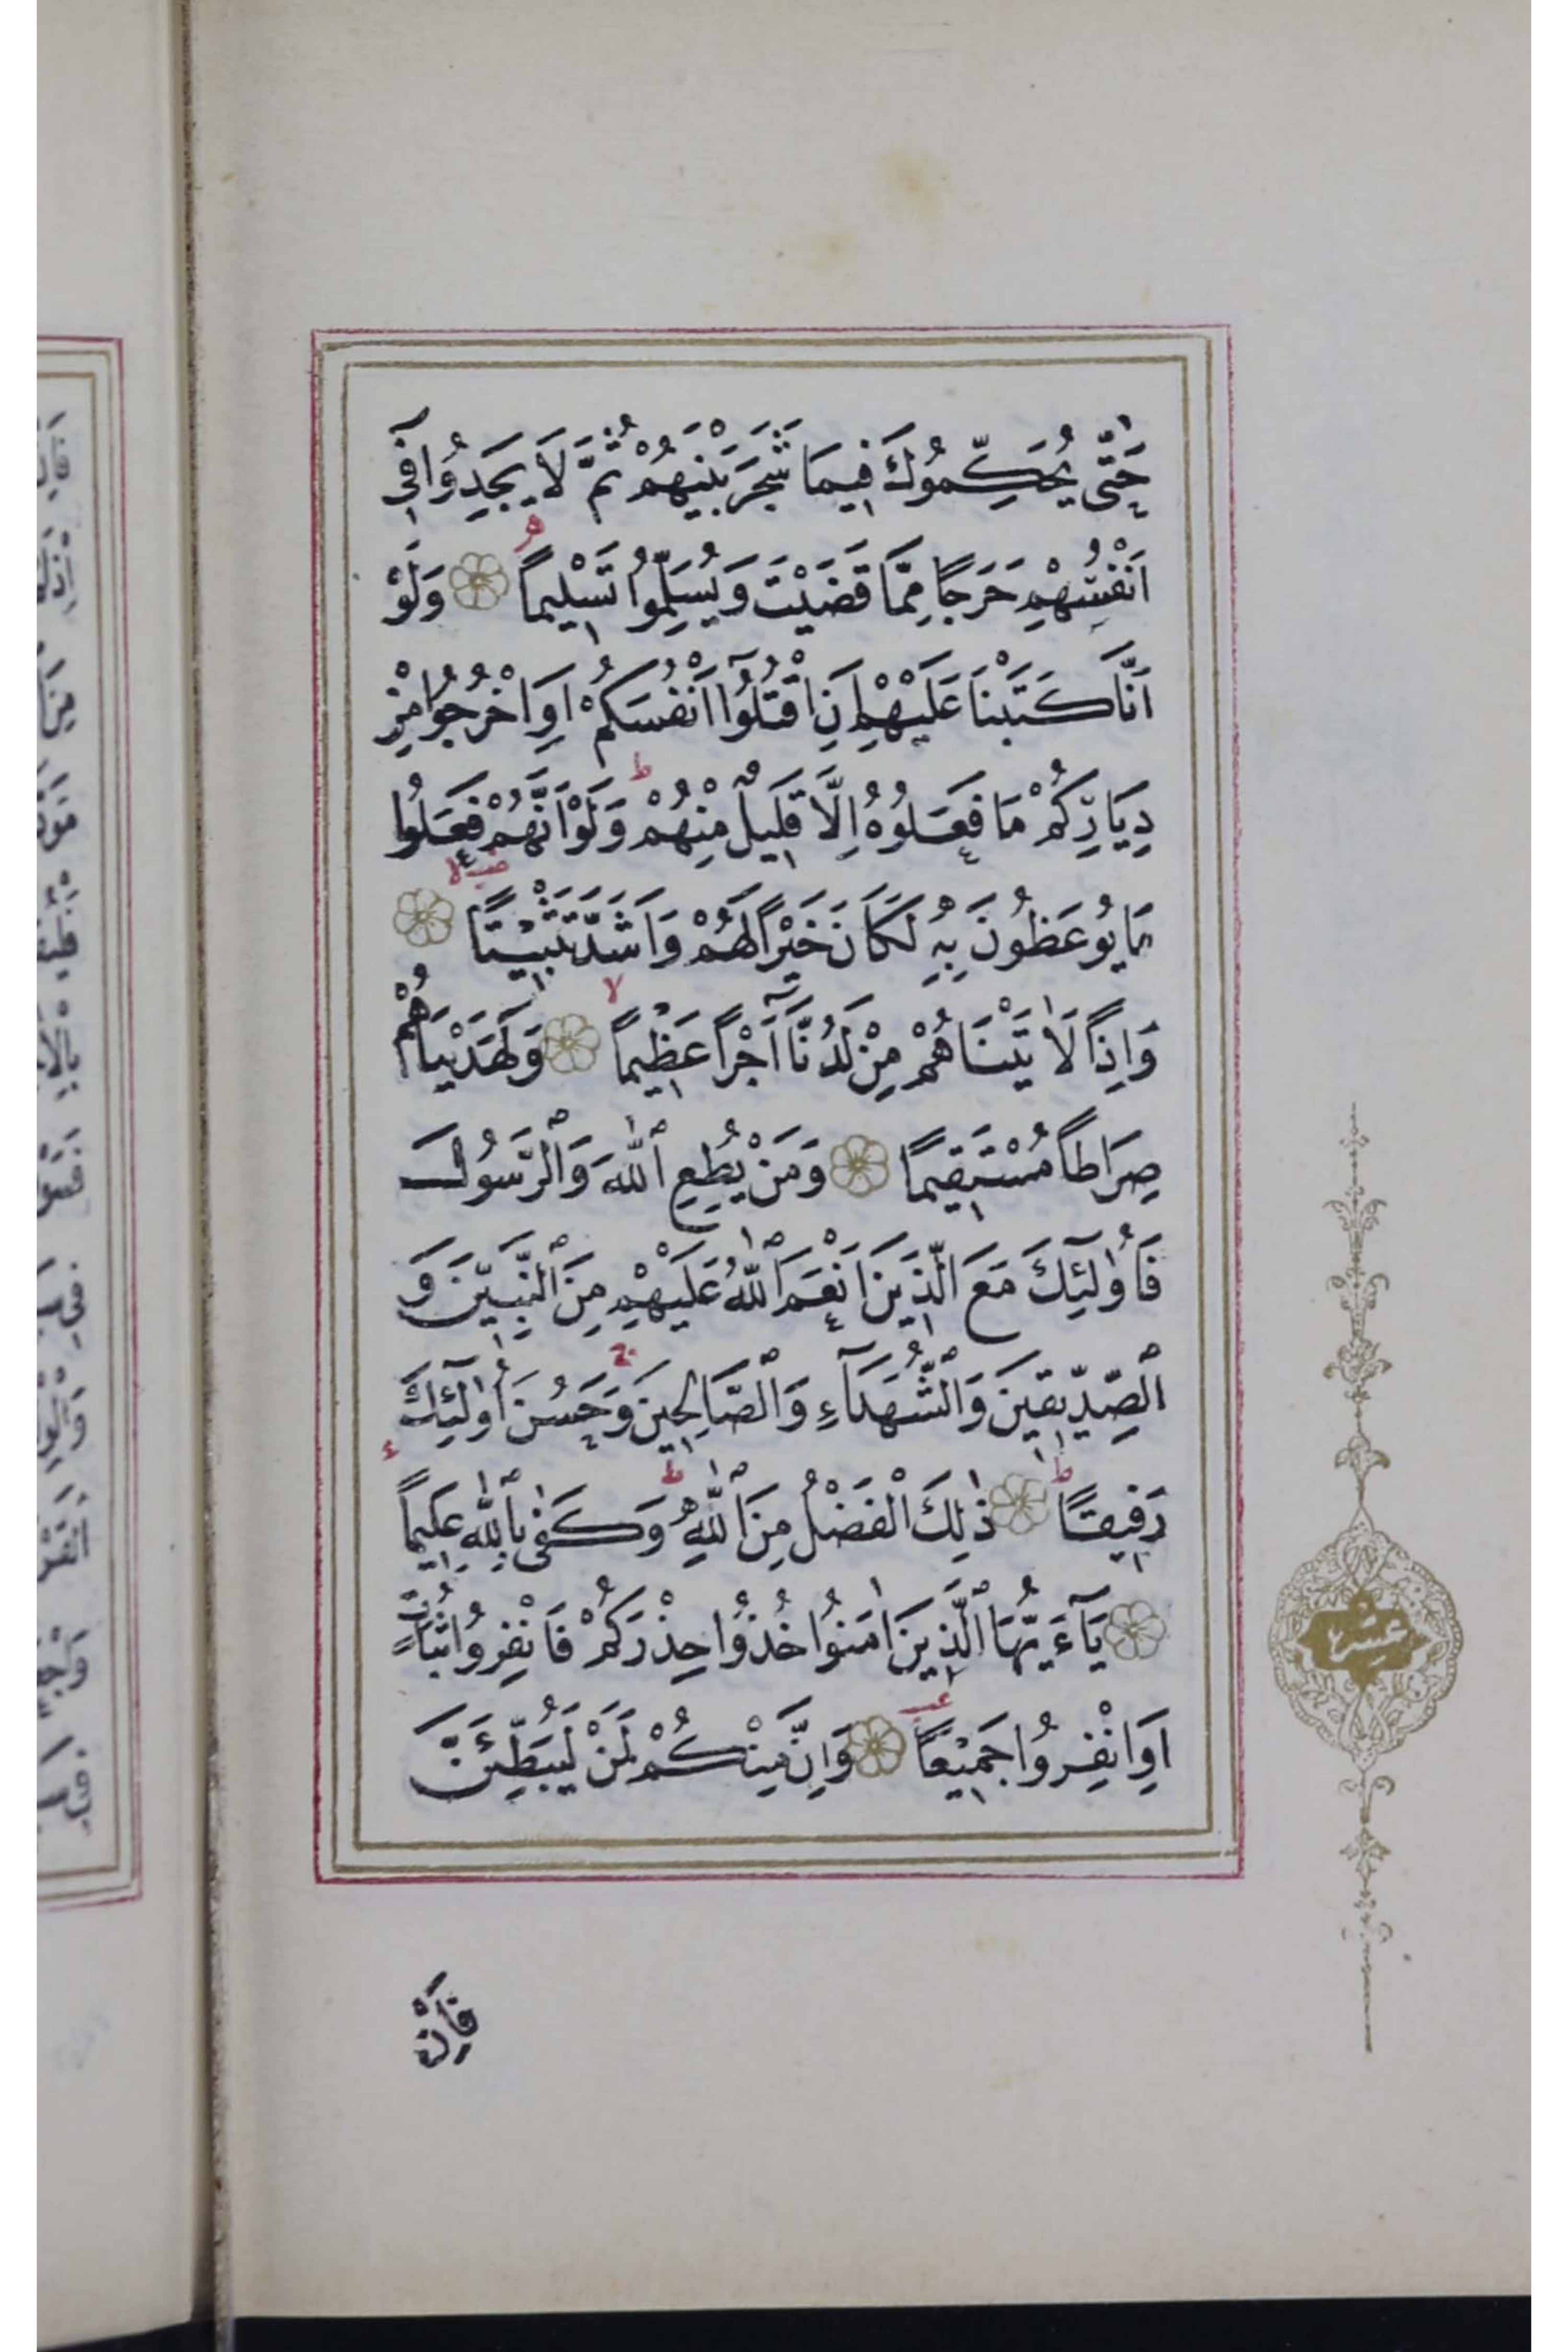 حَتّٰى يُحَكِّمُوكَ فِيمَا شَجَرَ بَيْنَهُمْ ثُمَّ لَا يَجِدُوا فِٓي
اَنْفُسِهِمْ حَرَجًا مِمَّا قَضَيْتَ وَيُسَلِّمُوا تَسْلِيمًا وَلَوْ
اَنَّا كَتَبْنَا عَلَيْهِمْ اَنِ اقْتُلُٓوا اَنْفُسَكُمْ اَوِ اخْرُجُوا مِنْ
دِيَارِكُمْ مَا فَعَلُوهُ اِلَّا قَلِيلٌ مِنْهُمْ ط وَلَوْ اَنَّهُمْ فَعَلُوا
مَا يُوعَظُونَ بِهِ لَكَانَ خَيْرًا لَهُمْ وَاَشَدَّ تَثْبِيتًا
وَاِذًا لَاٰتَيْنَاهُمْ مِنْ لَدُنَّٓا اَجْرًا عَظِيمًا وَلَهَدَيْنَاهُمْ
صِرَاطًا مُسْتَقِيمًا وَمَنْ يُطِعِ اللّٰهَ وَالرَّسُولَ
فَاُولٰٓئِكَ مَعَ الَّذِينَ اَنْعَمَ اللّٰهُ عَلَيْهِمْ مِنَ النَّبِيّنَ وَ
الصِّدِّيقِينَ وَالشُّهَدَٓاءِ وَالصَّالِحِينَ ج وَحَسُنَ اُولٰٓئِكَ
رَفِيقًا ط ذٰلِكَ الْفَضْلُ مِنَ اللّٰهِ ط وَكَفٰى بِاللّٰهِ عَلِيمًا
يَٓاءَيُّهَا الَّذِينَ اٰمَنُوا خُذُوا حِذْرَكُمْ فَانْفِرُوا ثُبَاتٍ
اَوِ انْفِرُوا جَمِيعًا وَاِنَّ مِنْكُمْ لَمَنْ لَيُبَطِّئَنَّ
عشر
فَاِنْ